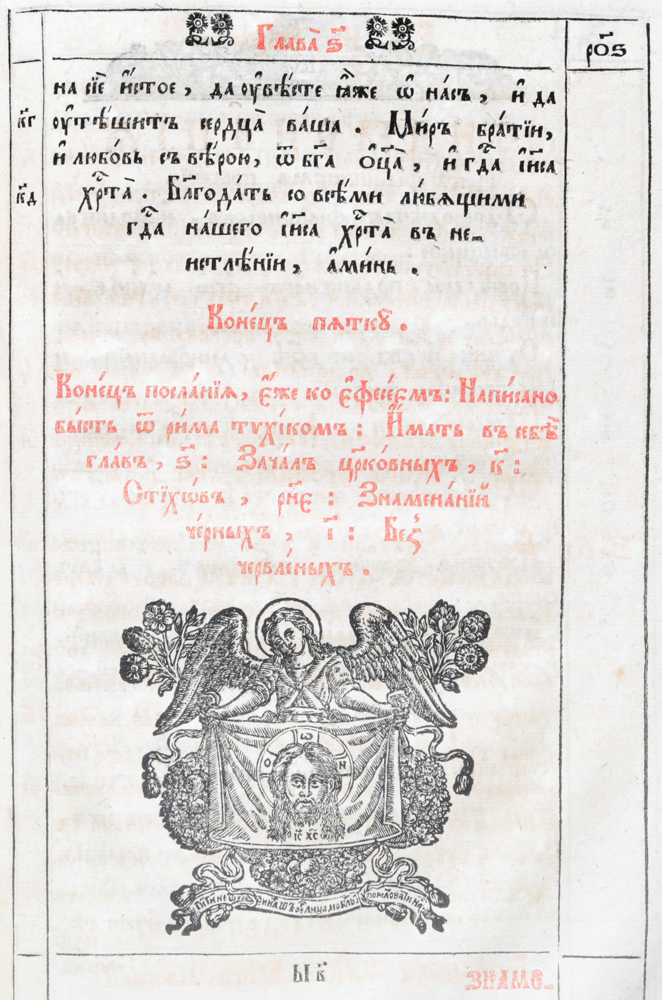 Глава̀ ѕ҃
рѻ҃ѕ
на сїѐ и҆́стое, да оу҆вѣ́сте ꙗ҆̀же ѡ҆ на́съ, и҆ да
к҃г оу҆тѣ́шитъ сердца̀ ва́ша. Ми́ръ бра́тїи,
и҆ любо́вь съ вѣ́рою, ѿ бг҃а ѻ҆ц҃а̀, и҆ гдⷭ҇а і҆и҃са
к҃д хрⷭ҇та̀. Блгⷣа́ть со всѣ́ми лю́бящими
гдⷭ҇а на́шего і҆и҃са хрⷭ҇та̀ въ не-
истлѣ́нїи, а҆ми́нь.
Коне́цъ пѧткꙋ̀.
Коне́цъ посла́нїѧ, є҆́же ко є҆фесе́ємъ: Напи́сано
бы́сть ѿ ри́ма тѵхі́комъ: И҆́мать въ себѣ̀
гла́въ, ѕ҃: Зача́лъ црⷪ҇ко́вныхъ, к҃:
Стїхѡ́въ, рн҃є: Знамена́нїй
че́рныхъ, і҃: Беѕ̾
червле́ныхъ.
Ѻ Ѡ Н
І҃С Х҃С
Ы в҃
ЗНАМЕ-